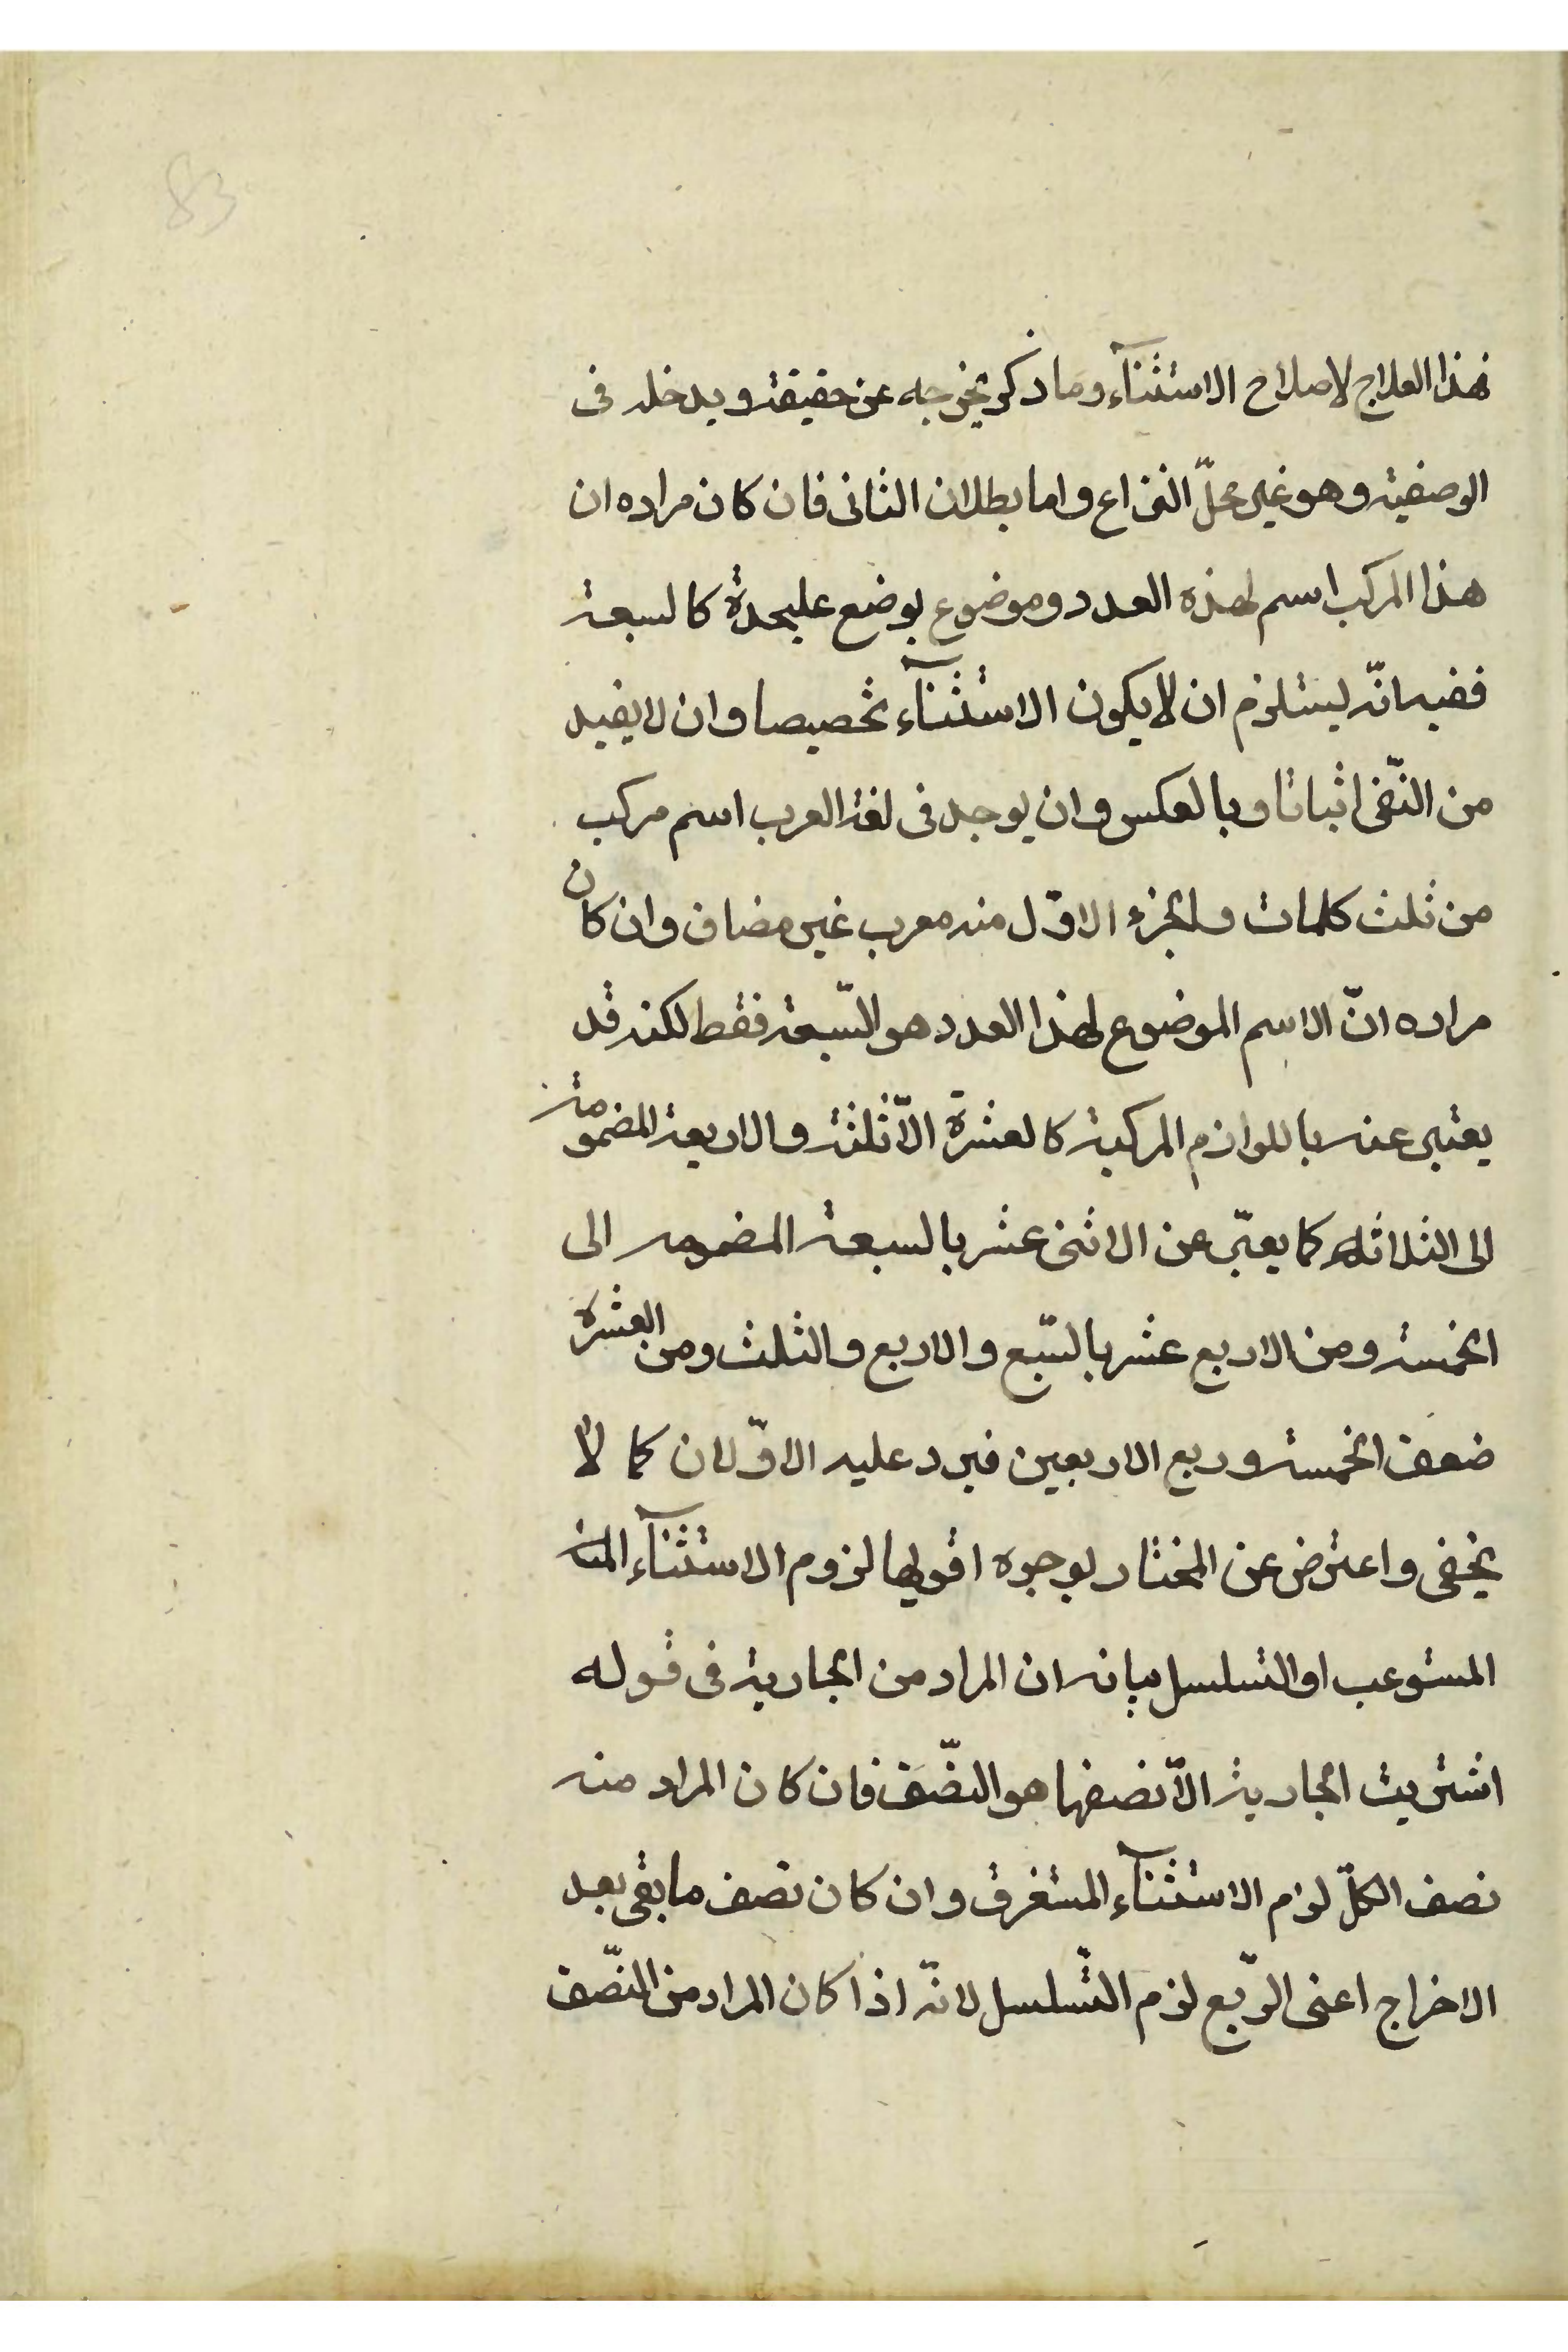 83
فهذا العلاج لاصلاح الاستثنآء وما ذكر يخرجه عن حقيقته ويدخله فى
الوصفية وهو غير محلّ النزاع واما بطلان الثانى فان كان مراده ان
هذا المركب اسم لهذه العدد وموضوع بوضع عليحدة كالسبعة
ففيه انّه ليستلزم ان لا يكون الاستثنآء تخصيصا وان لا يفيد
من النّفى اثباتا وبالعكس وان يوجد فى لغة العرب اسم مركب
من ثلث كلمات والجزء الاوّل منه معرب غير مضاف وان كان
مراده انّ الاسم الموضوع لهذا العدد هو السّبعة فقط لكنه قد
يعتبر عنه باللوازم المركبة كالعشرة الّا ثلثة والاربعة المضمومة
الى الثلاثة كما يعبّر عن الاثنى عشر بالسبعة المضمومه الى
الخمسة ومن الاربع عشر بالسّبع والاربع والثلث ومن العشرة
ضعف الخمسة وربع الاربعين فيرد عليه الاوّلان كما لا
يخفى واعترض عن المختار بوجوه اقوليها لزوم الاستثنآء
المستوعب او التسلسل بيانه ان المراد من الجارية فى قوله
اشتريت الجارية الّا نصفها هو النصّف فان كان المراد منه
نصف الكلّ لزم الاستثنآء المستغرق وان كان نصف ما بقى بعد
الاخراج اعنى الرّبع لزم التّسلسل لانّه اذا كان المراد من النصّف